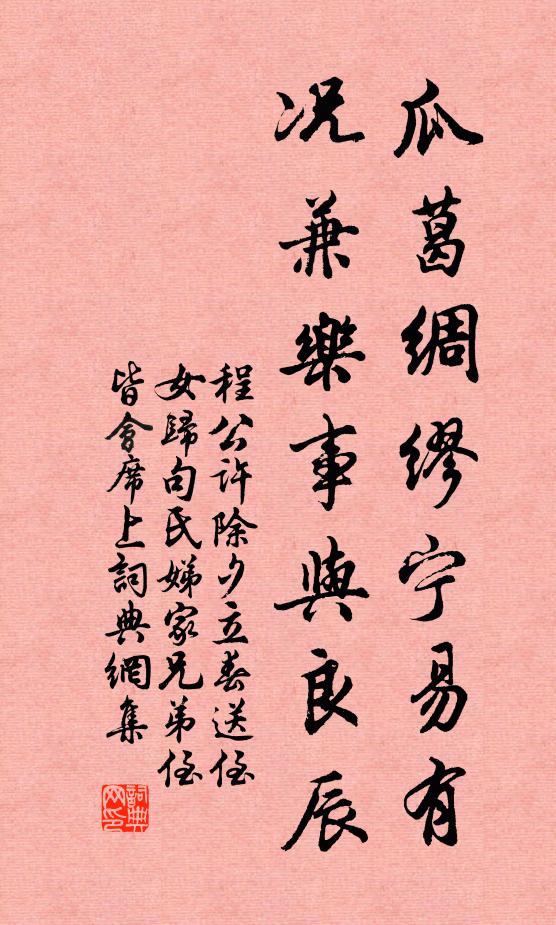 瓜葛綢繆宁易有
况兼樂事與良辰
程公許除夕立春送侄
女歸句氏娣家兄弟侄
皆會席上詞典網集
詞典
网印